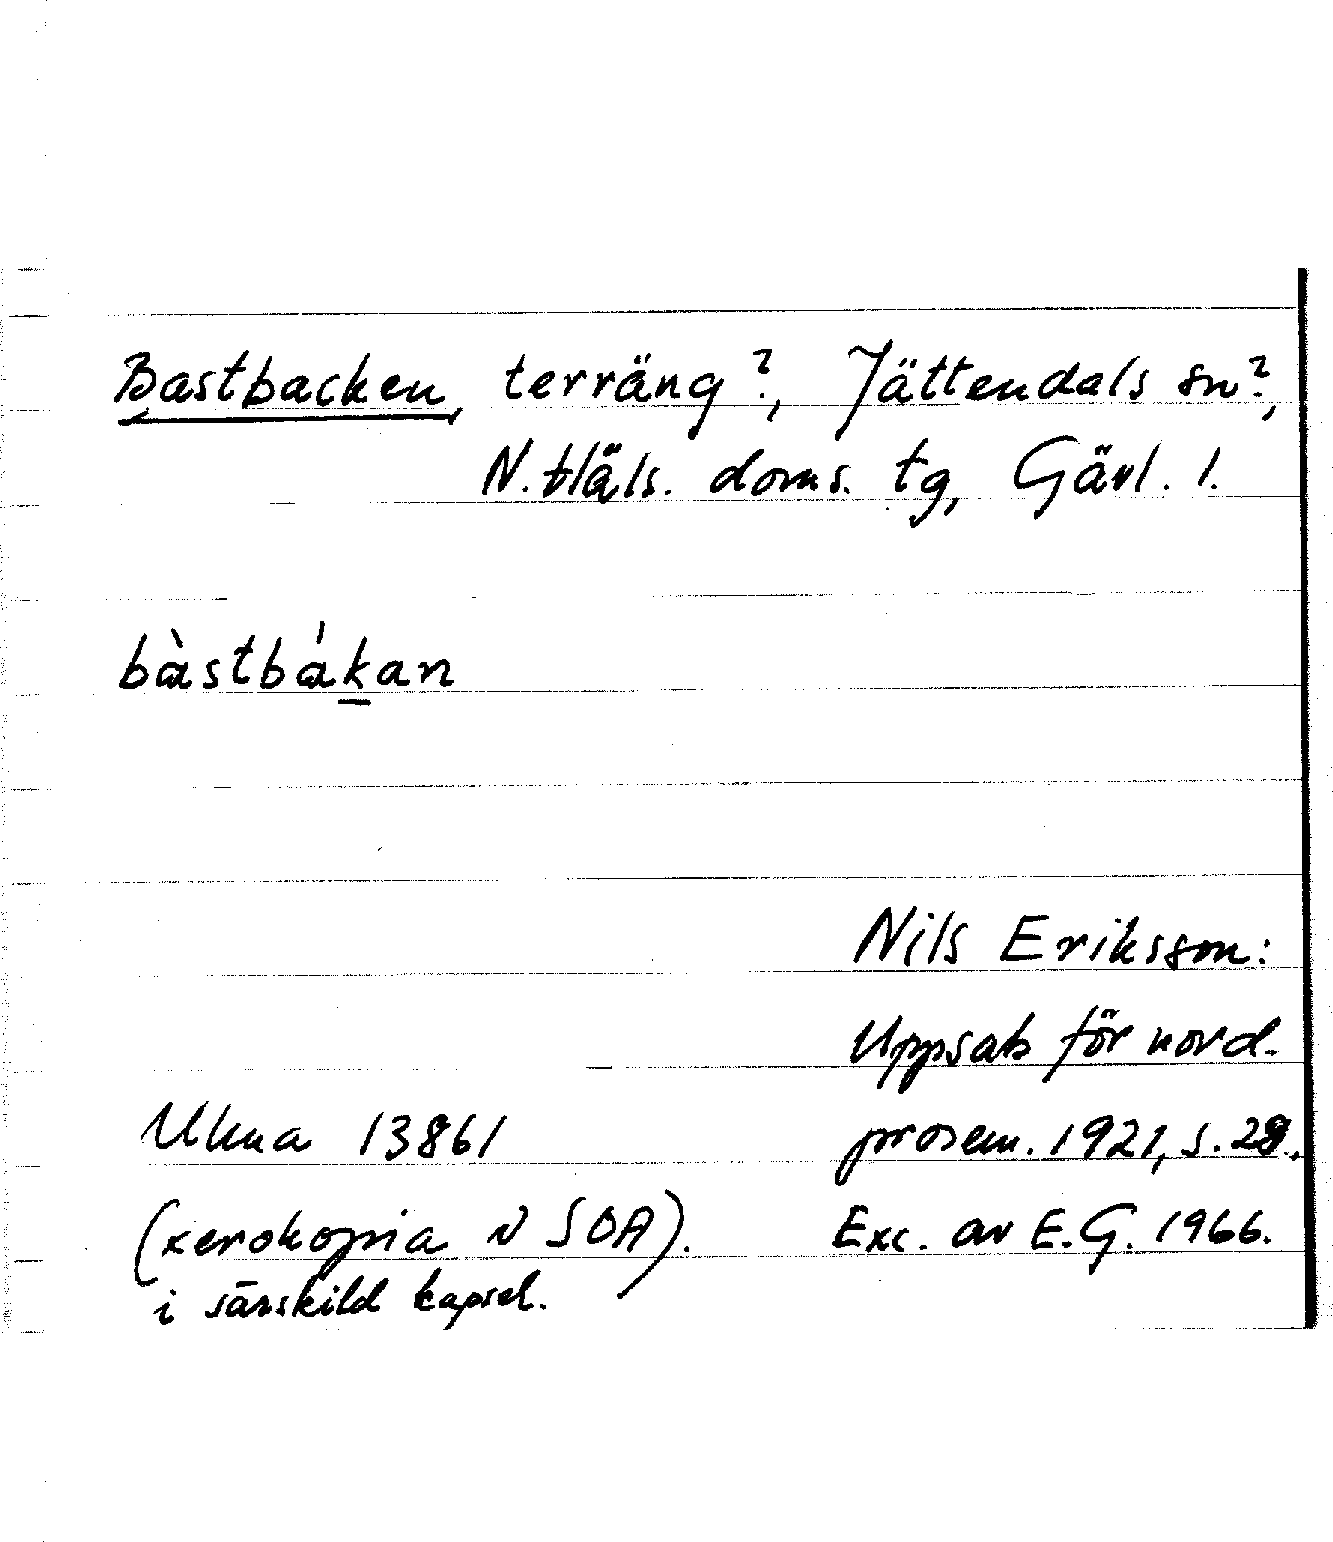 Bastbacken, terräng?, Jättendals sn?,
N. Häls. doms. tg, Gävl. l.
bàstbákan
Nils Eriksson:
Uppsats för nord.
prosem. 1921, s. 28.
Exc. av E.G. 1966.
Ulma 13861
(xerokopia N SOA).
i särskild kapsel.